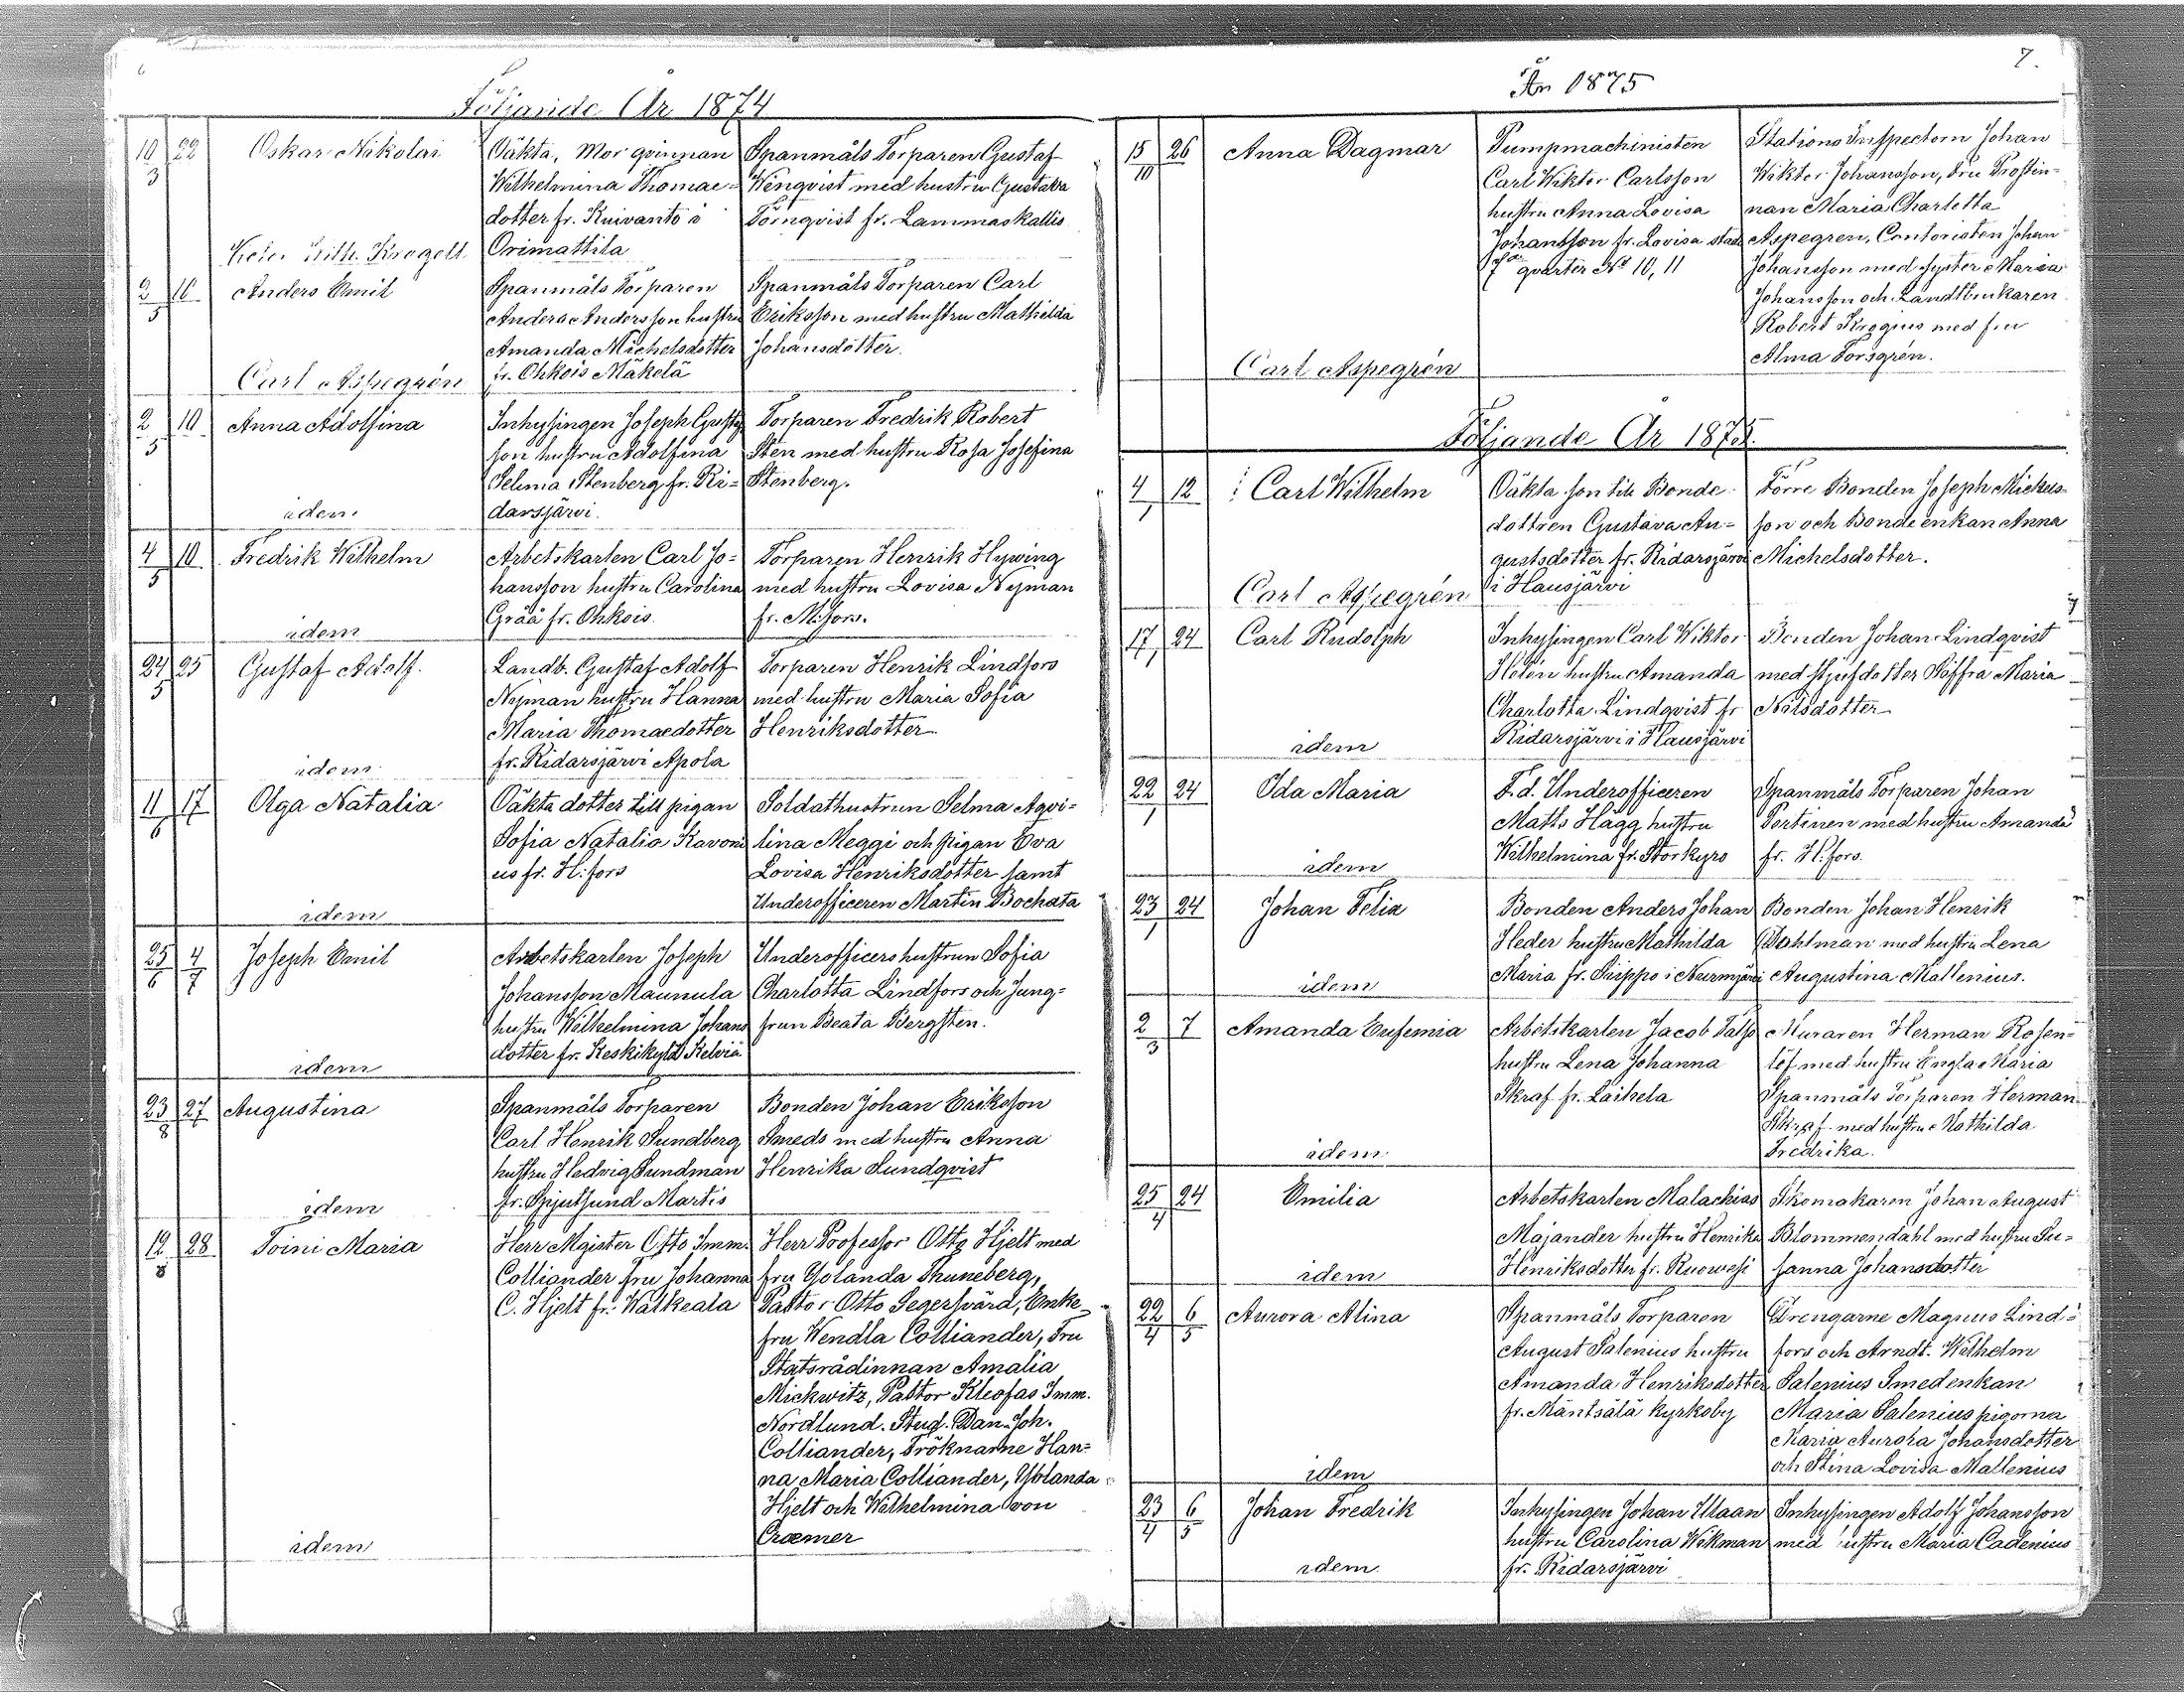 6
Följande År 1874
10/3 22 Oskar Nikolai
Oäkta, Mor qvinnan
Wilhelmina Thomae-
dotter fr. Kuivanto i
Orimattila
Spanmåls Torparen Gustaf
Wenqvist med hustru Gustava
Törnqvist fr. Lammaskallis
2/5 10 Anders Emil
Spanmåls Torparen
Anders Andersson hustru
Amanda Michelsdotter
fr. Ohkois Mäkelä
Spanmåls Torparen Carl
Eriksson med hustru Mathilda
Johansdotter.
Carl Aspegrén
2/5 10 Anna Adolfina
Inhysingen Joseph Gustafs
son hustru Adolfina
Selma Stenberg fr. Ri-
darsjärvi.
Torparen Fredrik Robert
Sten med hustru Rosa Josefina
Stenberg.
idem
4/5 10 Fredrik Wilhelm
Arbetskarlen Carl Jo-
hansson hustru Carolina
Gråå fr. Ohkois
Torparen Henrik Hywing
med hustru Lovisa Nyman
fr. H:fors.
idem
24/5 25 Gustaf Adolf.
Landb. Gustaf Adolf
Nyman hustru Hanna
Maria Thomaedotter
fr. Ridarsjärvi Apola
Torparen Henrik Lindfors
med hustru Maria Sofia
Henriksdotter
idem
11/6 17 Olga Natalia
Oäkta dotter till pigan
Sofia Natalia Kavoni
us fr. H:fors
Soldathustrun Selma Aqvi-
lina Meggi och pigan Eva
Lovisa Henriksdotter samt
Underofficeren Martin Bochata
idem
25/6 4/7 Joseph Emil
Arbetskarlen Joseph
Johansson Maunula
hustru Wilhelmina Johans
dotter fr. Keskikylä Kelviå
Underofficers hustrun Sofia
Charlotta Lindfors och Jung-
frun Beata Bergsten.
idem
23/8 27 Augustina
Spanmåls Torparen
Carl Henrik Sundberg
hustru Hedvig Sundman
fr. Spjutsund Martis
Bonden Johan Eriksson
Smeds med hustru Anna
Henrika Sundqvist
idem
12/8 28 Toini Maria
Herr Magister Otto Imm.
Colliander fru Johanna
C. Hjelt fr. Walkeala
Herr Professor Otto Hjelt med
fru Yolanda Thuneberg,
Pastor Otto Segersvärd, Enke
fru Wendla Colliander, Fru
Statsrådinnan Amalia
Mickwitz, Pastor Kleofas Imm.
Nordlund. Stud. Dan. Joh.
Colliander, Fröknarne Han-
na Maria Colliander, Yolanda
Hjelt och Wilhelmina von
Cræmer
idem
7.
År 1875
15/10 26 Anna Dagmar
Pumpmachinisten
Carl Wiktor Carlsson
hustru Anna Lovisa
Johansson fr. Lovisa stad
7de qvarter No 10, 11
Stations Inspectorn Johan
Wiktor Johansson, Fru Prostin-
nan Maria Charlotta
Aspegren, Contoristen Johan
Johansson med syster Maria
Johansson och Landtbrukaren
Robert Krogius med fru
Alma Forsgrén.
Carl Aspegrén
Följande År 1875.
4/1 12 Carl Wilhelm
Oäkta son till Bonde
dottren Gustava Au-
gustsdotter fr. Ridarsjärvi
i Hausjärvi
Förre Bonden Joseph Michels
son och Bonde enkan Anna
Michelsdotter.
Carl Aspegrén
17/1 24 Carl Rudolph
Inhysingen Carl Wiktor
Helén hustru Amanda
Charlotta Lindqvist fr
Ridarsjärvi i Hausjärvi
Bonden Johan Lindqvist
med styfdotter Söffra Maria
Nilsdotter
idem
22/1 24 Ida Maria
F.d. Underofficeren
Matts Hägg hustru
Wilhelmina fr. Storkyro
Spanmåls Torparen Johan
Pertinen med hustru Amanda
fr. H:fors.
idem
23/1 24 Johan Felix
Bonden Anders Johan
Heder hustru Mathilda
Maria fr. Siippo i Nurmijärvi
Bonden Johan Henrik
Dahlman med hustru Lena
Augustina Mallenius.
idem
2/3 7 Amanda Eufemia
Arbetskarlen Jacob Talso
hustru Lena Johanna
Skraf fr. Laihela
Muraren Herman Rosen-
löf med hustru Engla Maria
Spanmåls Torparen Herman
Skraf med hustru Mathilda
Fredrika.
idem
25/4 24 Emilia
Arbetskarlen Malachias
Majander hustru Henrika
Henriksdotter fr. Ruowesi
Skomakaren Johan August
Blommendahl med hustru Su-
sanna Johansdotter
idem
22/4 6/5 Aurora Alina
Spanmåls Torparen
August Salenius hustru
Amanda Henriksdotter
fr. Mäntsälä kyrkoby
Drengarne Magnus Lind-
fors och Arndt. Wilhelm
Salenius Smedenkan
Maria Salenius pigorna
Maria Aurora Johansdotter
och Stina Lovisa Mallenius
idem
23/4 6/5 Johan Fredrik
Inhysingen Johan Ulaan
hustru Carolina Wikman
fr. Ridarsjärvi
Inhysingen Adolf Johansson
med hustru Maria Cadenius
idem.